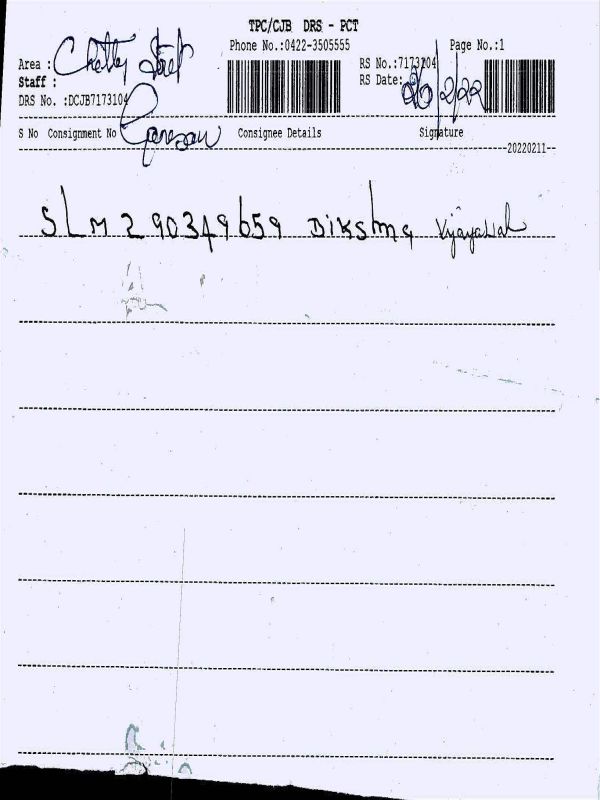 TPC/CJB DRS - PCT
Phone No.:0422-3505555 Page No.:1
Area : Chetty Street RS No.:7173104
Staff : Ganesan RS Date: 26/2/22
DRS No. :DCJB7173104
S No Consignment No Consignee Details Signature
20220211
SLM290349659 Diksha